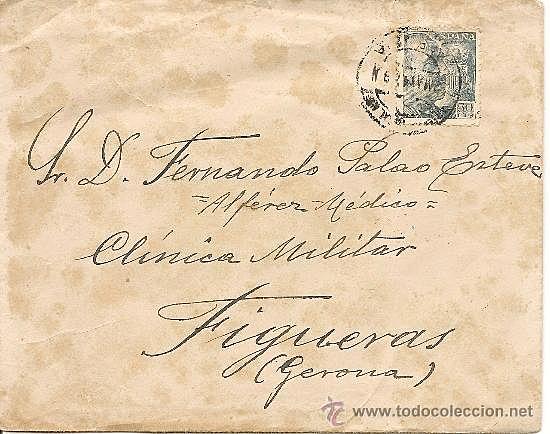 ESPAÑA
Sr. D. Fernando Palao Esteve
=Alférez-Médico=
Clínica Militar
Figueras
(Gerona)
www.todocoleccion.net